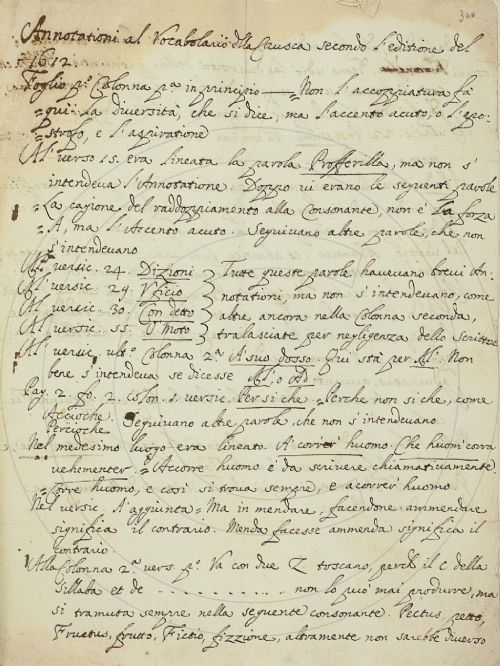 300
Annotationi al Vocabolario dlla Crusca secondo l'editione del
1612
Foglio pº Colonna pª in principio — Non l'accoppiatura fà
= qui la diversità, che si dice, ma l'accento acuto, o l'apo=
= strofo, e l'aspiratione
Al verso 15. era lineata la parola Profferilla, ma non s'
intendeva l'Annotatione. Doppo vi erano le seguenti parole
= La cagione del raddoppiamento alla Consonante, non è la forza
= A, ma l'Accento acuto. Seguivano altre parole, che non
s'intendevano
Al versic. 24. Dizioni
Al versic. 29. Vficio
Al versic. 30. Con detto
Al versic. 55. O Moto
Tutte queste parole havevano brevi An=
notationi, ma non s'intendevano, come
altre ancora nella Colonna seconda,
tralasciate per negligenza dello Scrittore
Al versic. ultº Colonna 2ª A suo dosso. Qui stà per Al. Non
bene s'intendeva se dicesse Al, o Ad
Pag. 2. 2. Colon. 5. versic. Persiche = Perche non si che, come
Acciocche.
Percioche. Seguivano altre parole, che non s'intendevano
Nel medesimo luogo era lineato. A correr huomo. Che huom corra
vehementer = Accorre huomo è da scrivere chiamativamente.
Corre huomo, e così si trova sempre, e acorrer huomo.
Nel versic. A'aggiunta = Ma in mendare, facendone ammendare
significa il contrario. Menda facesse ammenda significa il
contrario
Alla Colonna 2ª vers. pº Va con due Z toscano, perchè il c della
sillaba et de . . . . . . . . . . . . non lo può mai produrre, ma
si tramuta sempre nella seguente consonante. Pectus, petto,
Fructus, frutto, Fictio, fizzione, altramente non sarebbe diverso